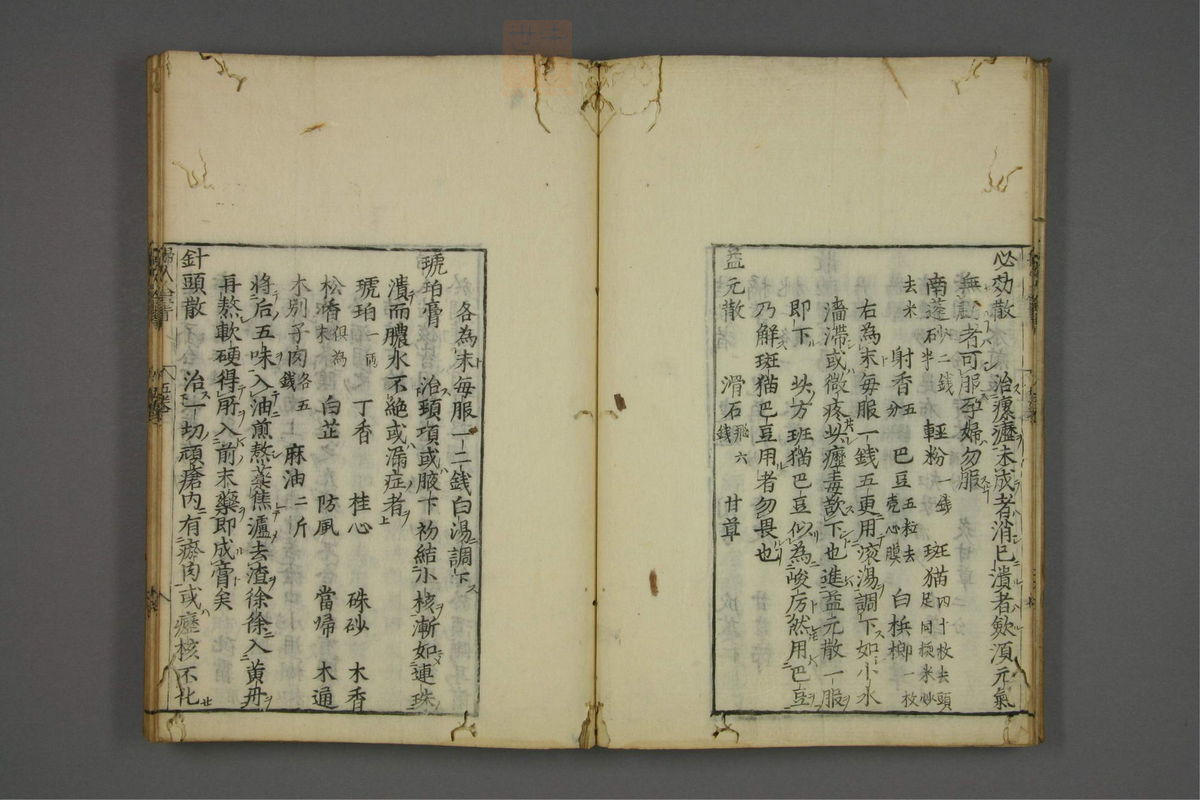 必効散　治瘰癧未成者消已潰者斂須元氣
無虧者可服孕婦勿服
南蓬砂二錢半　輕粉一錢　斑猫四十枚去頭足同粳米炒去米　射香五分　巴豆五粒去壳心膜　白梹榔一枚
右為末每服一錢五更用滚湯調下如小水
濇滯或微疼此癧毒欲下也進益元散一服
即下　此方斑猫巴豆似為峻厉然用巴豆
乃解斑猫巴豆用者勿畏也
益元散　滑石飛六錢　甘草
各為末每服一二錢白湯調下
琥珀膏　治頚項或腋下初結小核漸如連珠
潰而膿水不絶或漏症者
琥珀一兩　丁香　桂心　硃砂　木香
松香俱為末　白芷　防風　當帰　木通
木別子肉各五錢　麻油二斤
將后五味入油煎熬藥焦濾去渣徐徐入黄丹
再熬軟硬得所入前末藥即成膏矣
針頭散　治一切頑瘡内有瘀肉或癧核不化